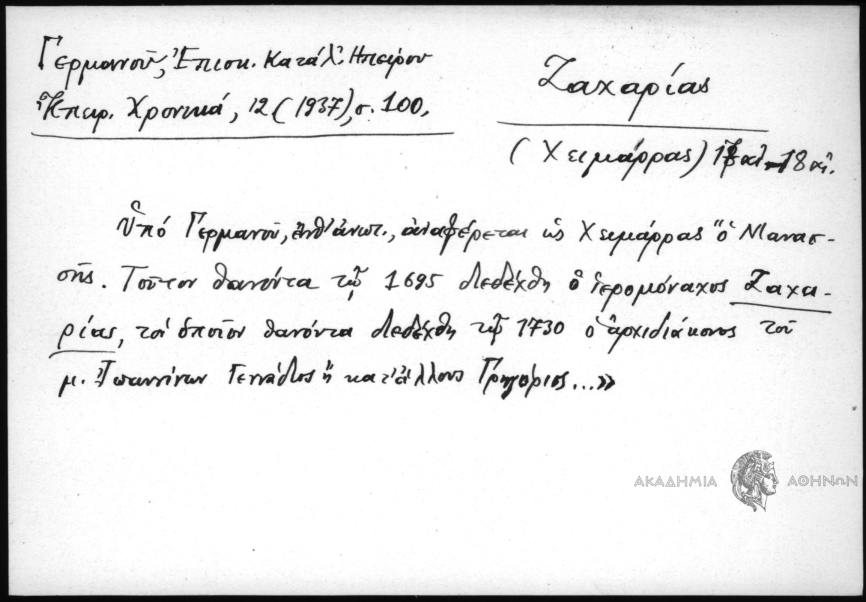 Γερμανοῦ, Ἐπισκ. Κατάλ. Ἠπείρου
Ἠπειρ. Χρονικά, 12 (1937), σ. 100.
Ζαχαρίας
(Χειμάρρας) 17 αἰ.-18 αἰ.
Ὑπό Γερμανοῦ, ἔνθ' ἀνωτ., ἀναφέρεται ὡς Χειμάρρας "ὁ Μανασ-
σῆς. Τοῦτον θανόντα τῷ 1695 διεδέχθη ὁ ἱερομόναχος Ζαχα-
ρίας, τόν ὁποῖον θανόντα διεδέχθη τῷ 1730 ὁ ἀρχιδιάκονος τοῦ
μ. Ἰωαννίνων Γεννάδιος ἤ κατ' ἄλλους Γρηγόριος...»
ΑΚΑΔΗΜΙΑ ΑΘΗΝΩΝ